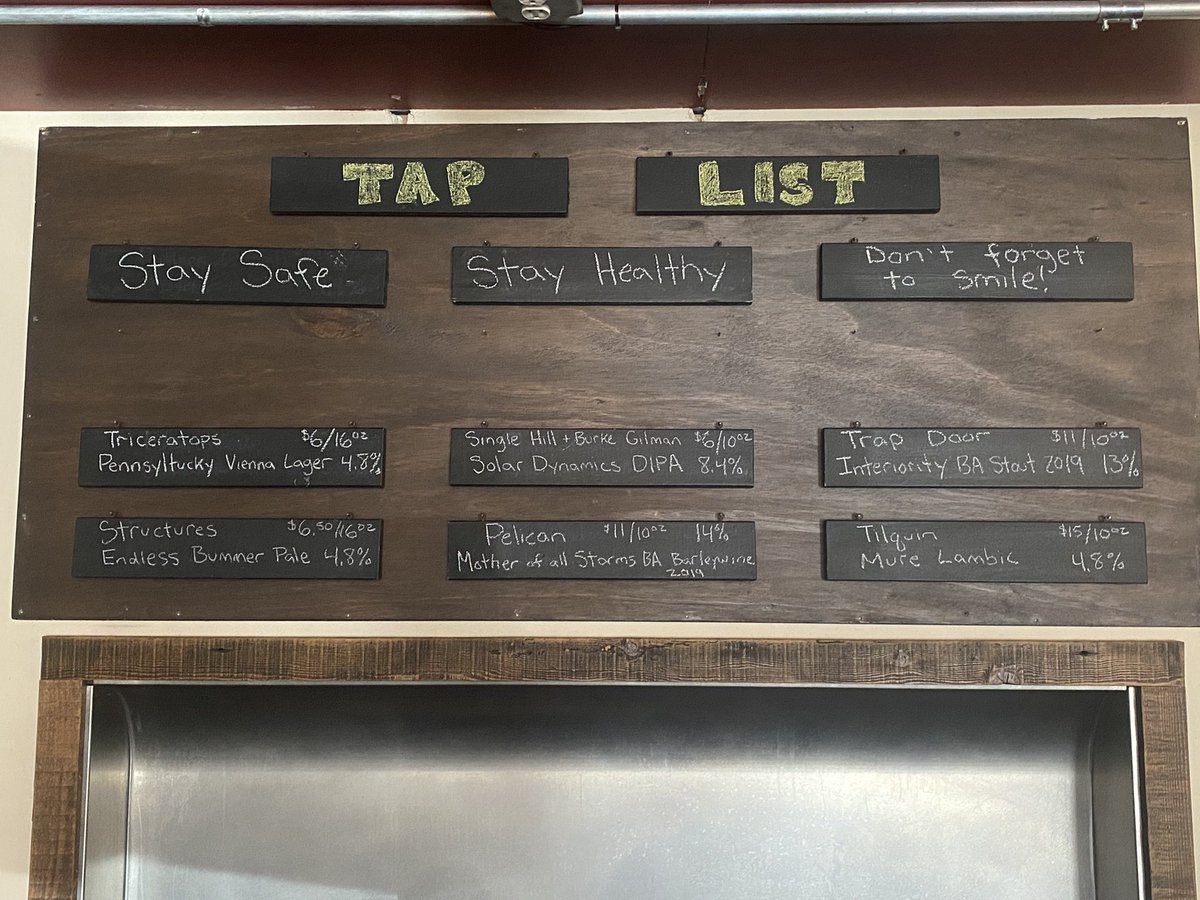 TAP LIST
Stay Safe
Stay Healthy
Don't forget
to smile!
Triceratops $6/16oz
Pennsyltucky Vienna Lager 4.8%
Single Hill + Burke Gilman $6/10oz
Solar Dynamics DIPA 8.4%
Trap Door $11/10oz
Interiority BA Stout 2019 13%
Structures $6.50/16oz
Endless Bummer Pale 4.8%
Pelican $11/10oz 14%
Mother of all Storms BA Barleywine
2019
Tilquin $15/10oz
Mure Lambic 4.8%